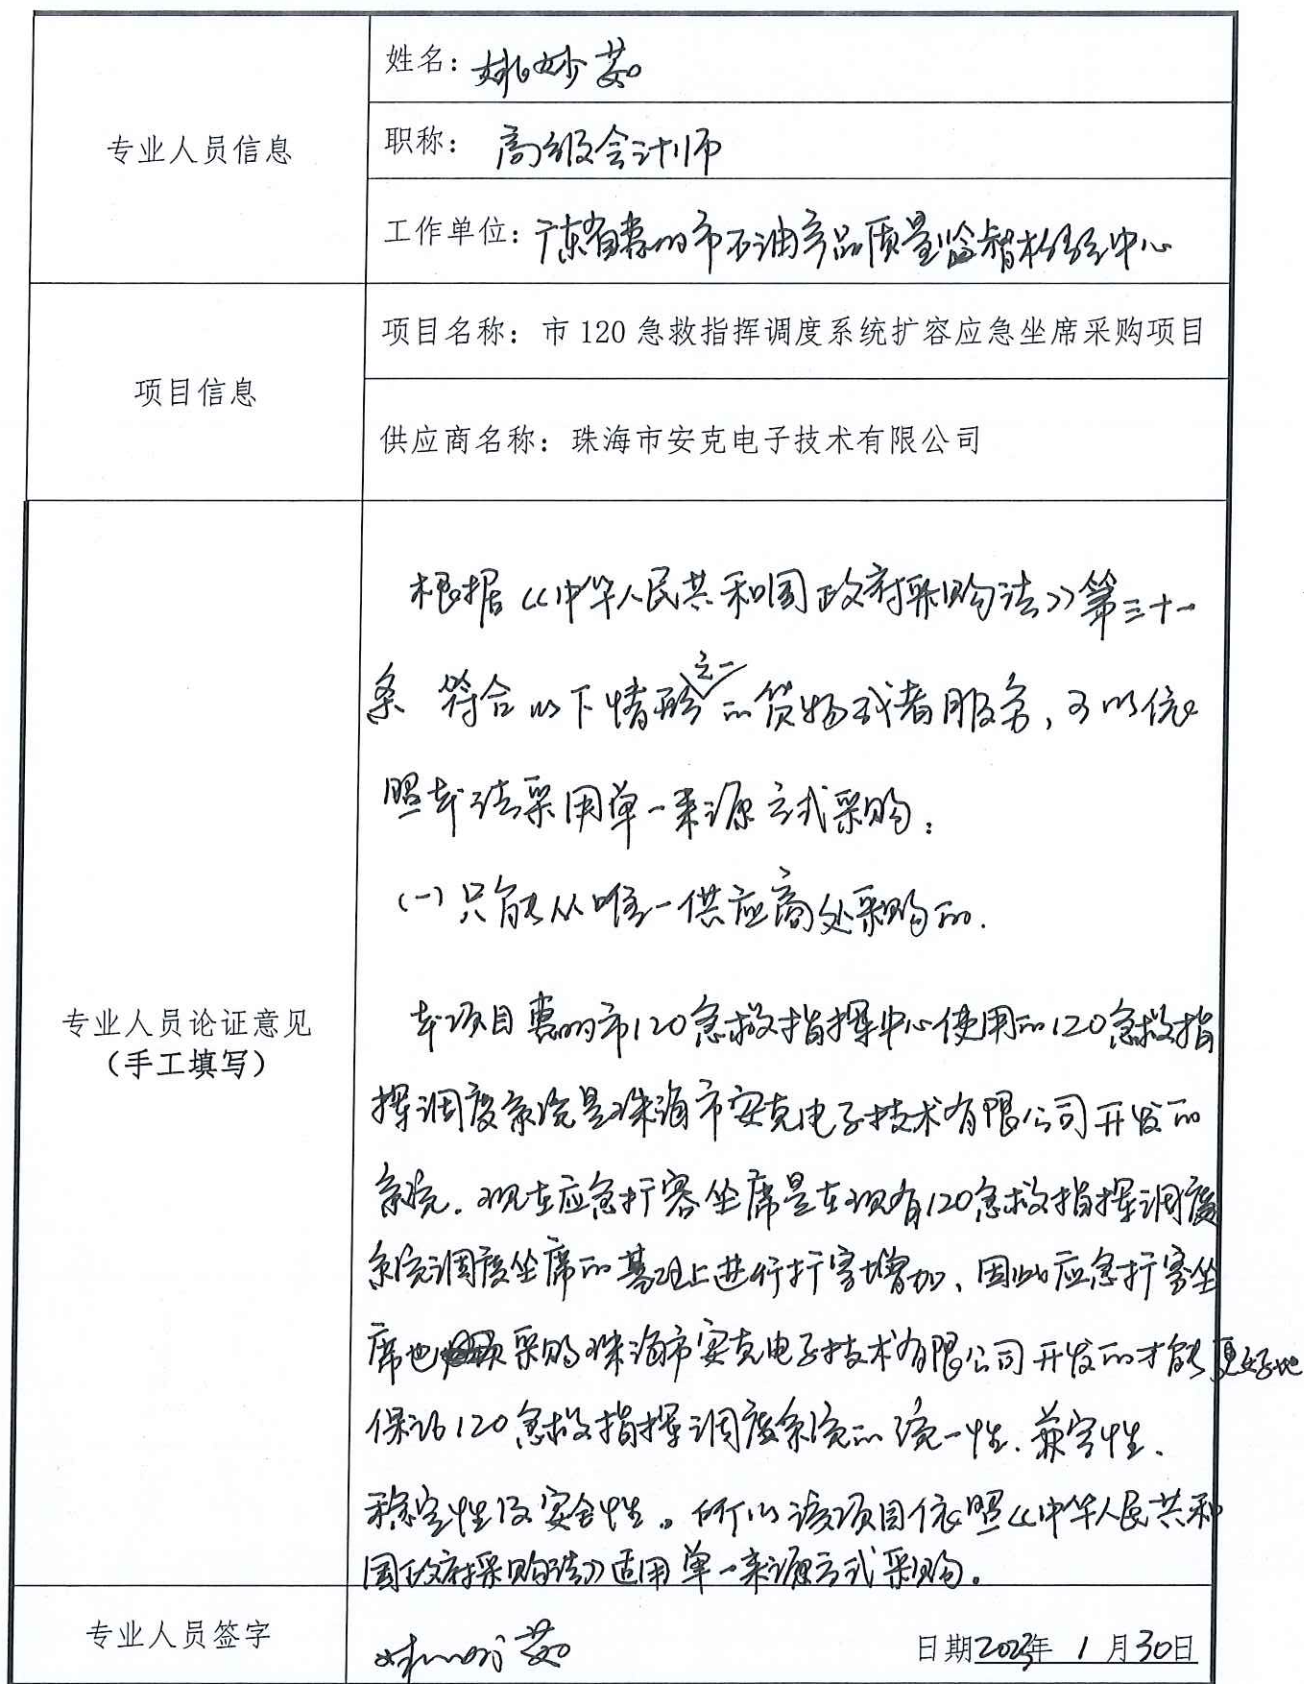 姓名：姚妙茹
职称：高级会计师
专业人员信息
工作单位：广东省惠州市石油产品质量监督检验中心
项目名称：市 120 急救指挥调度系统扩容应急坐席采购项目
项目信息
供应商名称：珠海市安克电子技术有限公司
根据《中华人民共和国政府采购法》第三十一
条 符合以下情形之一的货物或者服务，可以依
照本法采用单一来源方式采购：
（一）只能从唯一供应商处采购的.
专业人员论证意见
（手工填写）
本项目惠州市120急救指挥中心使用的120急救指
挥调度系统是珠海市安克电子技术有限公司开发的
系统。现在应急扩容坐席是在现有120急救指挥调度
系统调度坐席的基础上进行扩容增加、因此应急扩容坐
席也 采购珠海市安克电子技术有限公司开发的才能更好地
保证120急救指挥调度系统的统一性、兼容性、
稳定性及安全性。所以该项目依照《中华人民共和
国政府采购法》适用单一来源方式采购。
专业人员签字
姚妙茹
日期2023年 1 月30日